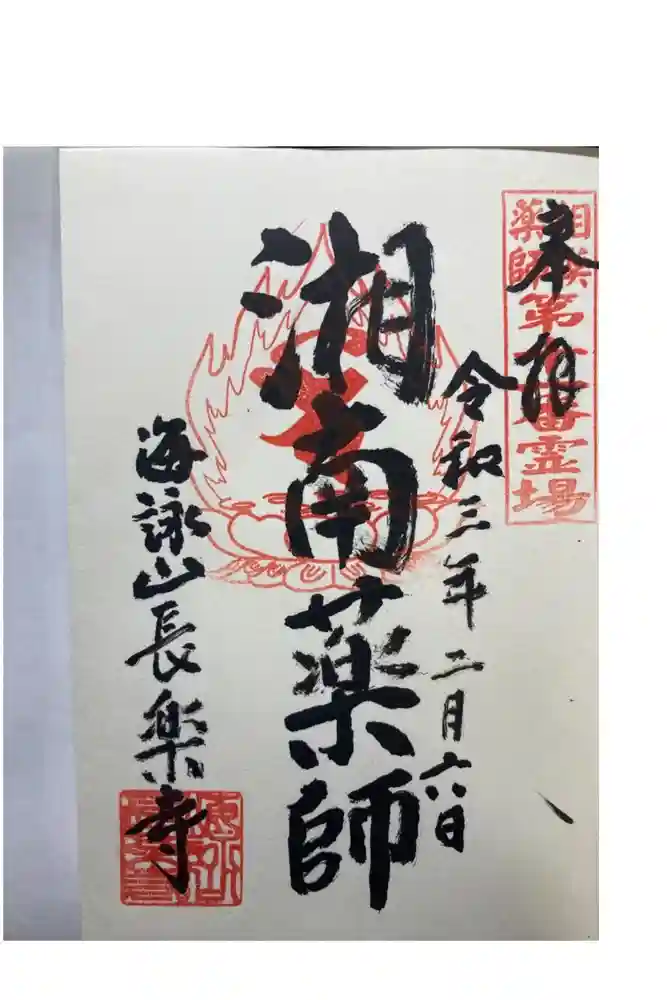 奉拝
相模薬師第十番霊場
令和三年二月六日
湘南薬師
海詠山長楽寺